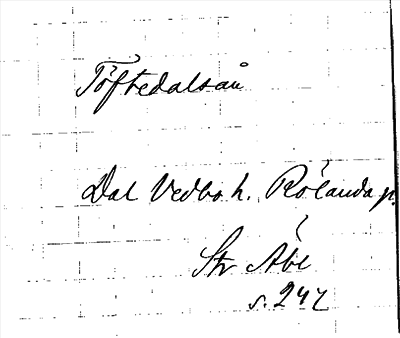 Töftedalsån
Dal Vedbo h. Rölanda p.
Str Åbl
s. 247